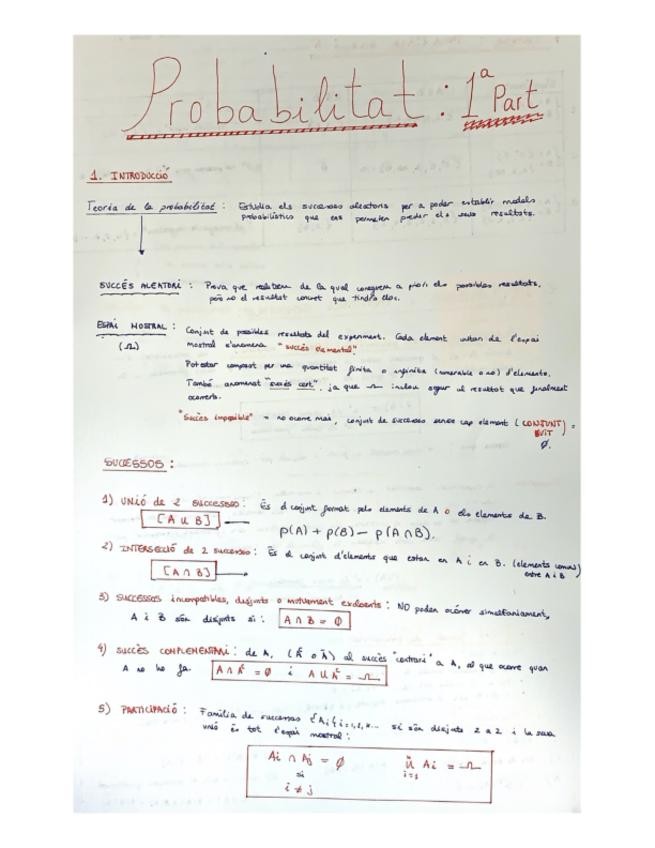 Probabilitat: 1ª Part
1. INTRODUCCIÓ
Teoria de la probabilitat : Estudia els successos aleatoris per a poder establir models
probabilístics que ens permeten predir els seus resultats.
SUCCÉS ALEATORI : Prova que realitzem de la qual coneguem a priori els possibles resultats,
però no el resultat concret que tindrà lloc.
ESPAI MOSTRAL : Conjunt de possibles resultats del experiment. Cada element de l'espai
(Ω) mostral s'anomena "succés elemental".
Pot estar compost per una quantitat finita o infinita (numerable o no) d'elements.
També anomenat "succés cert", ja que Ω inclou segur al resultat que finalment
ocorrerà.
"Succés impossible" = no ocorre mai, conjunt de successos sense cap element (CONJUNT) =
BUIT
∅.
SUCCESSOS :
1) UNIÓ de 2 successos : És el conjunt format pels elements de A o els elements de B.
[A ∪ B] p(A) + p(B) − p(A ∩ B).
2) INTERSECCIÓ de 2 successos : És el conjunt d'elements que estan en A i en B. (elements comuns)
[A ∩ B] entre A i B
3) SUCCESSOS incompatibles, disjunts o mutuament excloents : NO poden ocórrer simultàniament,
A i B són disjunts si : A ∩ B = ∅
4) SUCCÉS COMPLEMENTARI : de A, (Aᶜ o Ā) al succés "contrari" a A, al que ocorre quan
A no ho fa. A ∩ Aᶜ = ∅ i A ∪ Aᶜ = Ω
5) PARTICIPACIÓ : Família de successos {Ai} i=1,2,k... si són disjunts 2 a 2 i la seua
unió és tot l'espai mostral :
Ai ∩ Aj = ∅ Ü Ai = Ω
si i=1
i ≠ j